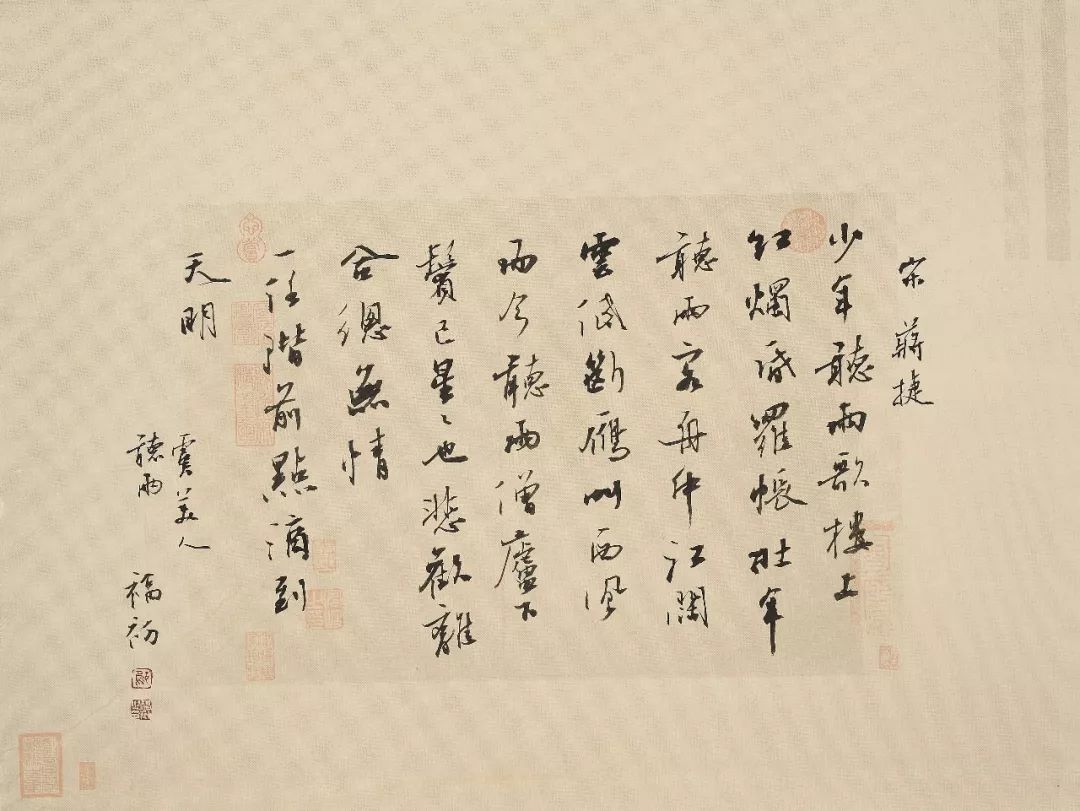 宋 蔣捷
少年聽雨歌樓上
紅燭昏羅帳壯年
聽雨客舟中江闊
雲低斷鴈叫西風
而今聽雨僧廬下
鬢已星〻也悲歡離
合總無情
一任階前點滴到
天明
虞美人
聽雨
福初